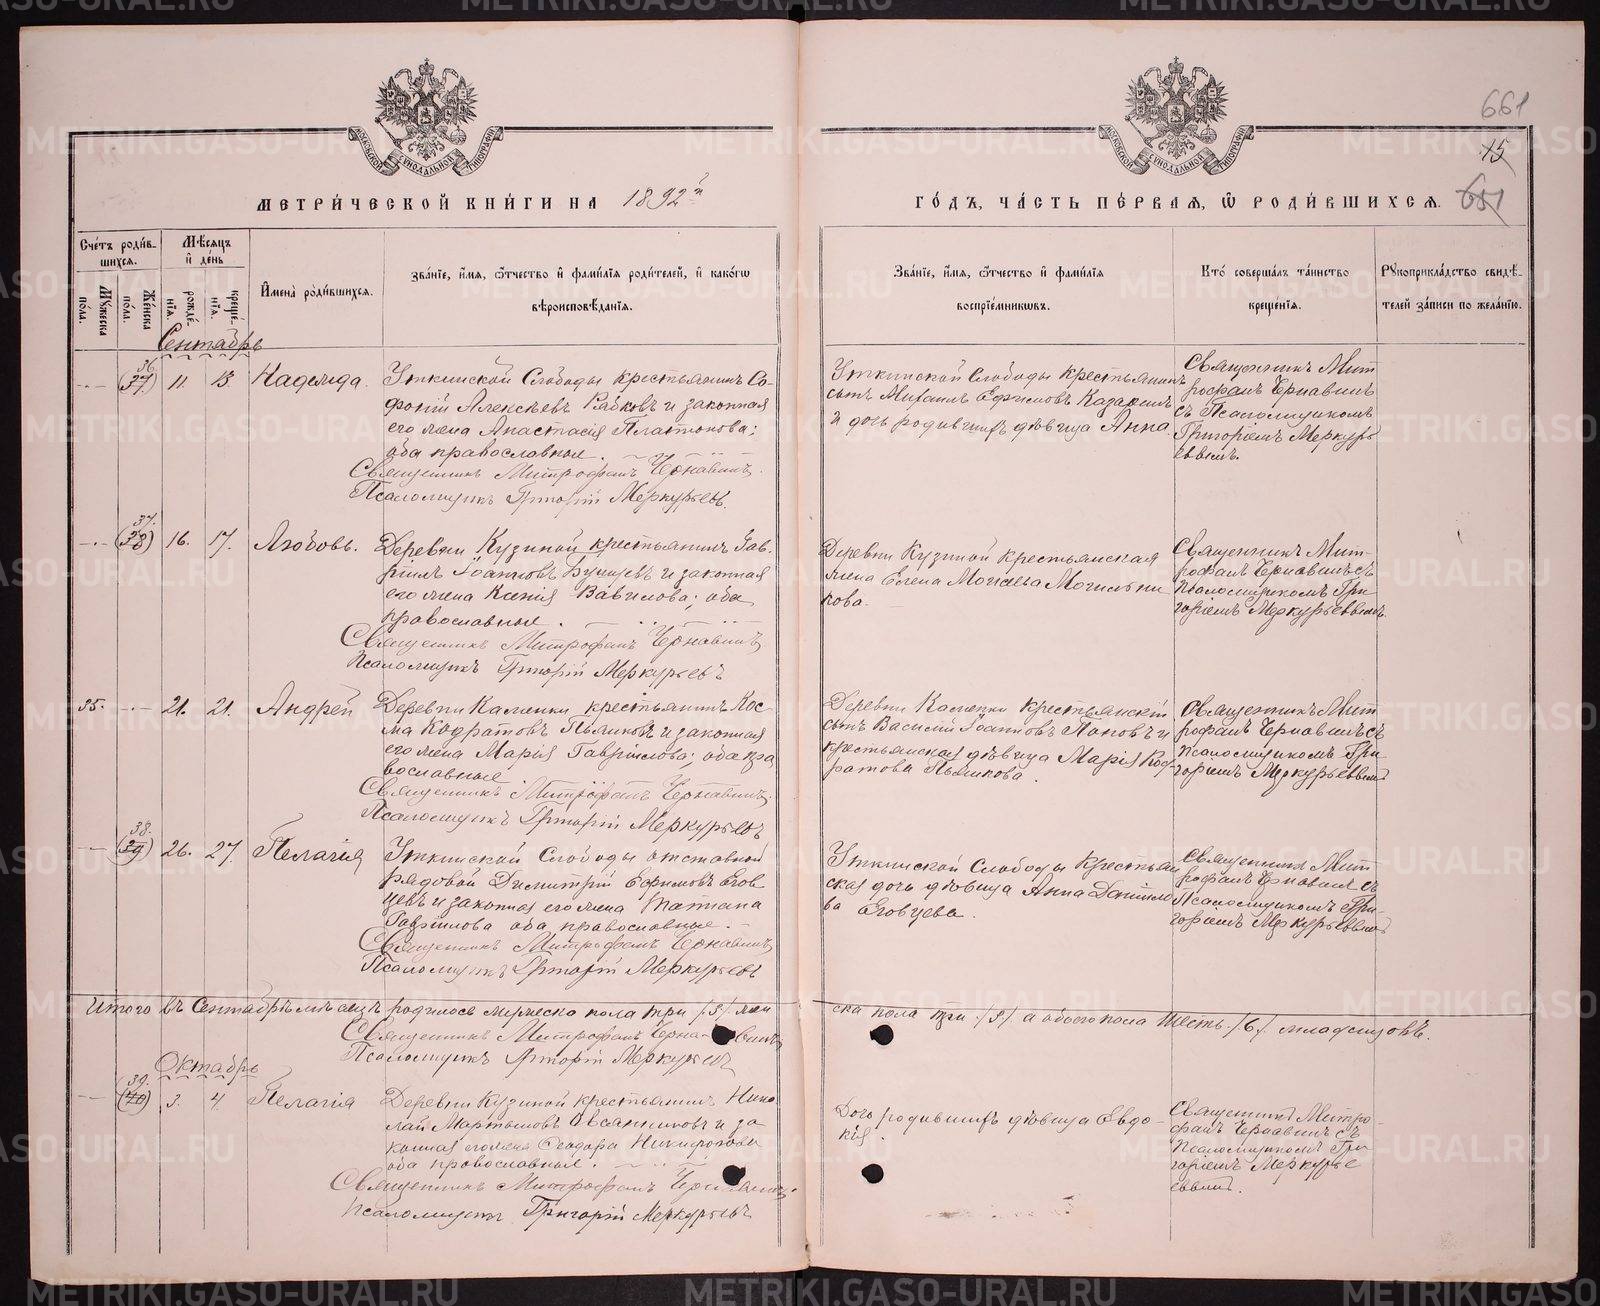 МЕТРИ́ЧЕСКОЙ КНИ́ГИ НА 1892 й
ГО́ДЪ, ЧА́СТЬ ПЕ́РВАЯ, Ѿ РОДИ́ВШИХСЯ.
661
15
651
Сче́тъ роди́в-
шихся.
Мѣ́сяцъ
и́ де́нь
Мꙋ́жеска
по́ла.
Же́нска
по́ла.
рожде́-
нїя.
креще́-
нїя.
И҆мена̀ роди́вшихся.
Зва́нїе, и҆́мя, ѻ҆́тчество и҆ фами́лїя роди́телей, и҆ како́гѡ
вѣроисповѣ́данїя.
Зва́нїе, и҆́мя, ѻ҆́тчество и҆ фами́лїя
воспрїе́мникѡвъ.
Кто̀ соверша́лъ та́инство
креще́нїя.
Рꙋкоприкла́дство свидѣ́-
телей за́писи по жела́нїю.
Сентябрь
36
(37) 11. 13. Надежда.
Уткинской Слободы крестьянинъ Со-
фоній Алексѣевъ Рябковъ и законная
его жена Анастасія Платонова;
оба православные.
Священникъ Митрофанъ Чернавинъ.
Псаломщикъ Григорій Меркурьевъ.
Уткинской Слободы крестьянинъ
сынъ Михаилъ Ефимовъ Казаринъ
и дочь родившихъ дѣвица Анна
Священникъ Мит
рофанъ Чернавинъ
съ Псаломщикомъ
Григоріемъ Меркурь
евымъ.
37.
(38) 16. 17. Любовь.
Деревни Кузиной крестьянинъ Гав-
ріилъ Іоанновъ и законная
его жена Ксенія Вавилова; оба
православные.
Священникъ Митрофанъ Чернавинъ
Псаломщикъ Григорій Меркурьевъ
Деревни Кузиной крестьянская
жена Елена Моисеева Могильни
кова.
Священникъ Мит-
рофанъ Чернавинъ съ
псаломщикомъ Гри-
горіемъ Меркурьевымъ.
35. 21. 21. Андрей
Деревни Каменки крестьянинъ Кос-
ма Кодратовъ Пьянковъ и законная
его жена Марія Гавриилова; оба пра
вославные
Священникъ Митрофанъ Чернавинъ.
Псаломщикъ Григорій Меркурьевъ
Деревни Каменки крестьянскій
сынъ Василій Іоанновъ Поповъ и
крестьянская дѣвица Марія Код-
ратова Пьянкова.
Священникъ Мит
рофанъ Чернавинъ съ
псаломщикомъ Гри-
горіемъ Меркурьевымъ
38.
(39) 26. 27. Пелагія
Уткинской Слободы отставной
рядовой Димитрій Ефимовъ Егов
цевъ и законная его жена Татиана
Гавриилова оба православные.
Священникъ Митрофанъ Чернавинъ
Псаломщикъ Григорій Меркурьевъ
Уткинской Слободы крестьян
ская дочь дѣвица Анна Данило
ва Еговцева.
Священникъ Мит
рофанъ Чернавинъ съ
Псаломщикомъ Гри-
горіемъ Меркурьевымъ
Итого въ Сентябрѣ мѣсяцѣ родилось мужеска пола три /3/ жен
ска пола три /3/ а обоего пола шесть /6/ младенцовъ.
Священникъ Митрофанъ Чернавинъ
Псаломщикъ Григорій Меркурьевъ
Октябрь
39.
(40) 3. 4. Пелагія
Деревни Кузиной крестьянинъ Нико
лай Мартыновъ Овсянниковъ и за
конная его жена Ѳеодора Никифорова
оба православные.
Священникъ Митрофанъ Чернавинъ.
Псаломщикъ Григорій Меркурьевъ
Дочь родившихъ дѣвица Евдо-
кія.
Священникъ Митро-
фанъ Чернавинъ съ
псаломщикомъ Гри
горіемъ Меркурье
евымъ.
METRIKI.GASO-URAL.RU